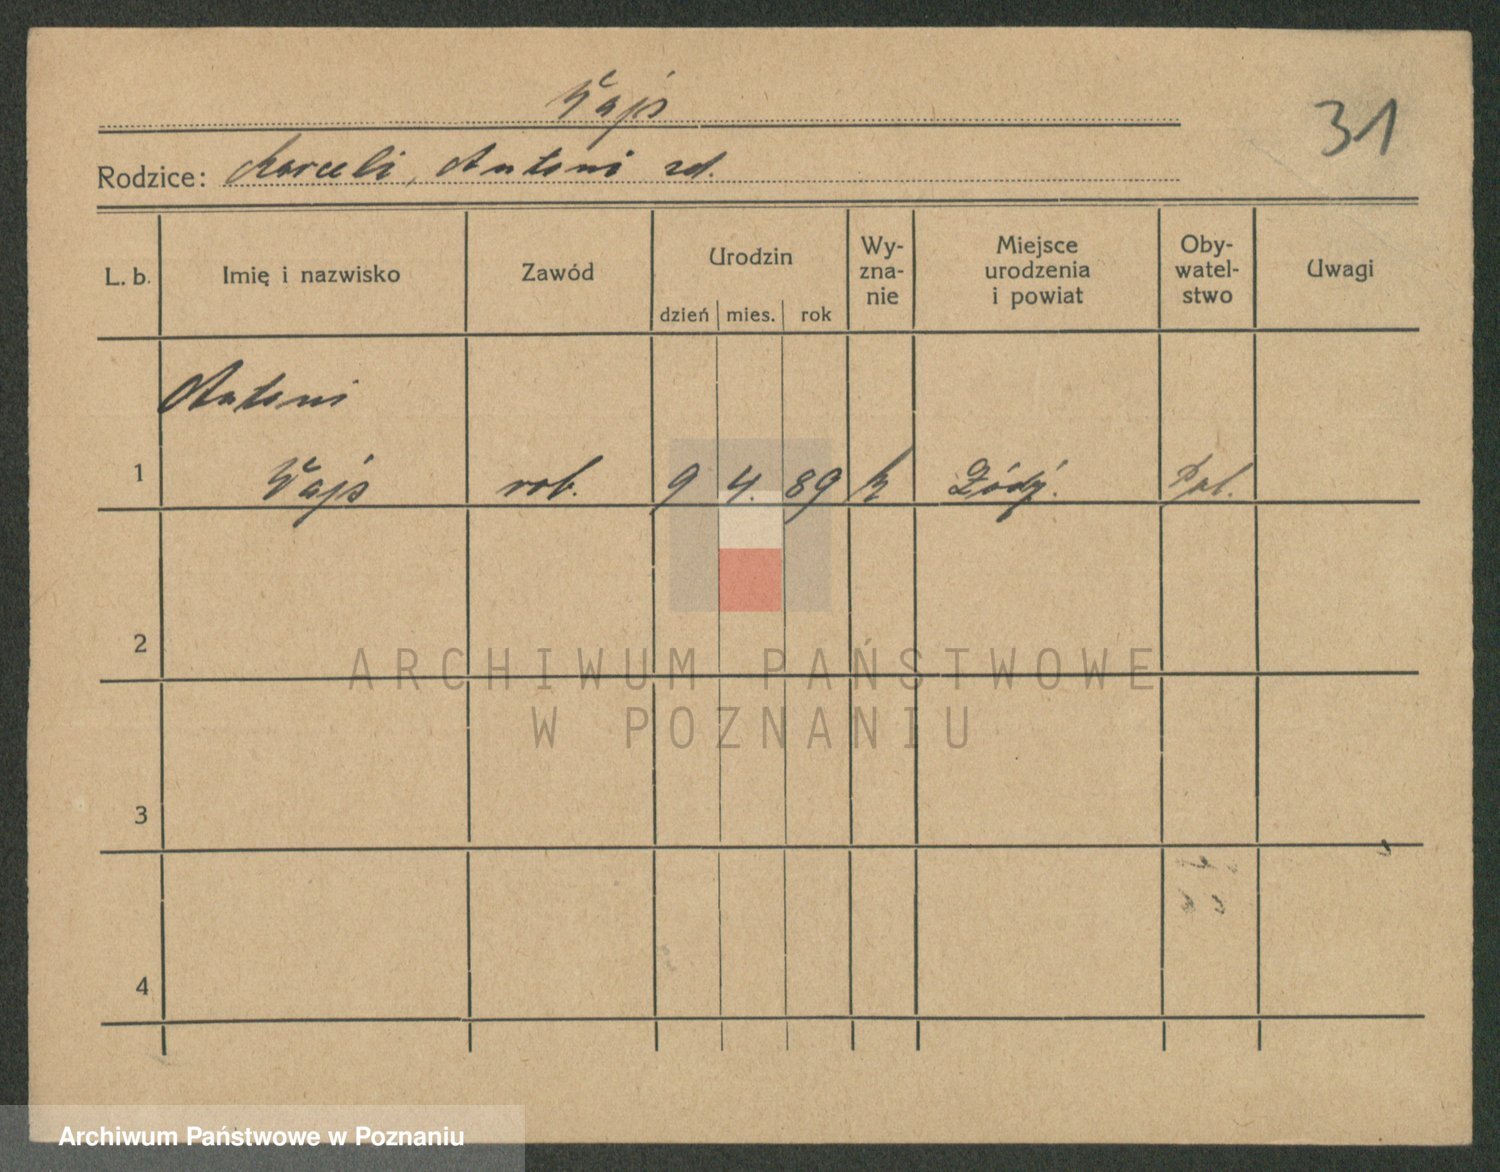 Wajs
31
Rodzice: Marceli, Antoni zd.
L. b. Imię i nazwisko Zawód Urodzin dzień mies. rok Wy- zna- nie Miejsce urodzenia i powiat Oby- watel- stwo Uwagi
Antoni
1 Wajs rob. 9 4. 89 k Łódź. Pol.
2
ARCHIWUM PAŃSTWOWE
W POZNANIU
3
4
Archiwum Państwowe w Poznaniu